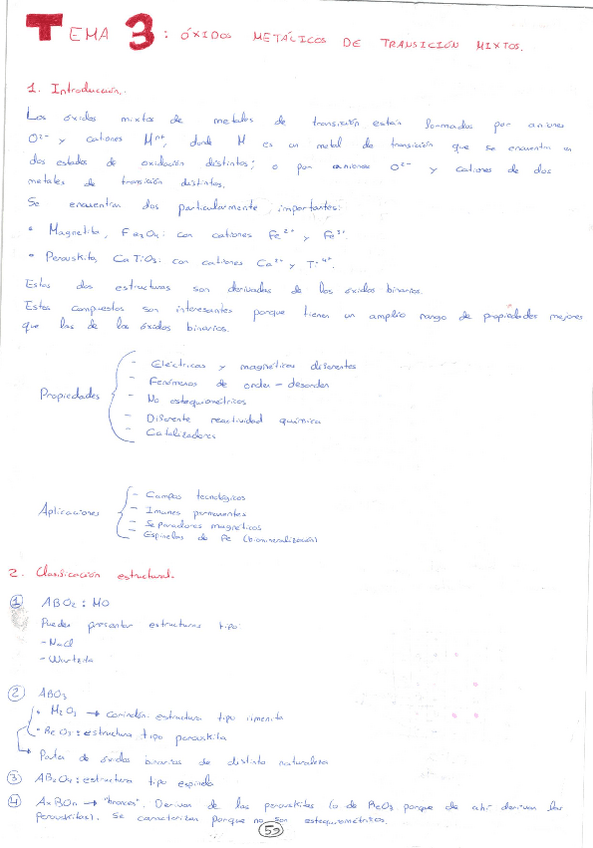 TEMA 3: ÓXIDOS METÁLICOS DE TRANSICIÓN MIXTOS.
1. Introducción.
Los óxidos mixtos de metales de transición están formados por aniones
O²⁻ y cationes Mⁿ⁺, donde M es un metal de transición que se encuentra en
dos estados de oxidación distintos; o por aniones O²⁻ y cationes de dos
metales de transición distintos.
Se encuentran dos particularmente importantes:
• Magnetita, Fe₃O₄: con cationes Fe²⁺ y Fe³⁺
• Perovskita, CaTiO₃: con cationes Ca²⁺ y Ti⁴⁺.
Estas dos estructuras son derivadas de los óxidos binarios.
Estos compuestos son interesantes porque tienen un amplio rango de propiedades mejores
que las de los óxidos binarios.
Propiedades
- Eléctricas y magnéticas diferentes
- Fenómenos de orden-desorden
- No estequiométricos
- Diferente reactividad química
- Catalizadores
Aplicaciones
- Campos tecnológicos
- Imanes permanentes
- Separadores magnéticos
- Espinelas de Fe (biomineralización)
2. Clasificación estructural.
① ABO₂: MO
Pueden presentar estructuras tipo:
- NaCl
- Wurtzita
② ABO₃
• M₂O₃ → Corindón: estructura tipo ilmenita
• ReO₃: estructura tipo perovskita
→ Parten de óxidos binarios de distinta naturaleza
③ AB₂O₄: estructura tipo espinela
④ AxBOn → "bronces". Derivan de las perovskitas (o de ReO₃ porque de ahí derivan las
perovskitas). Se caracterizan porque no son estequiométricos.